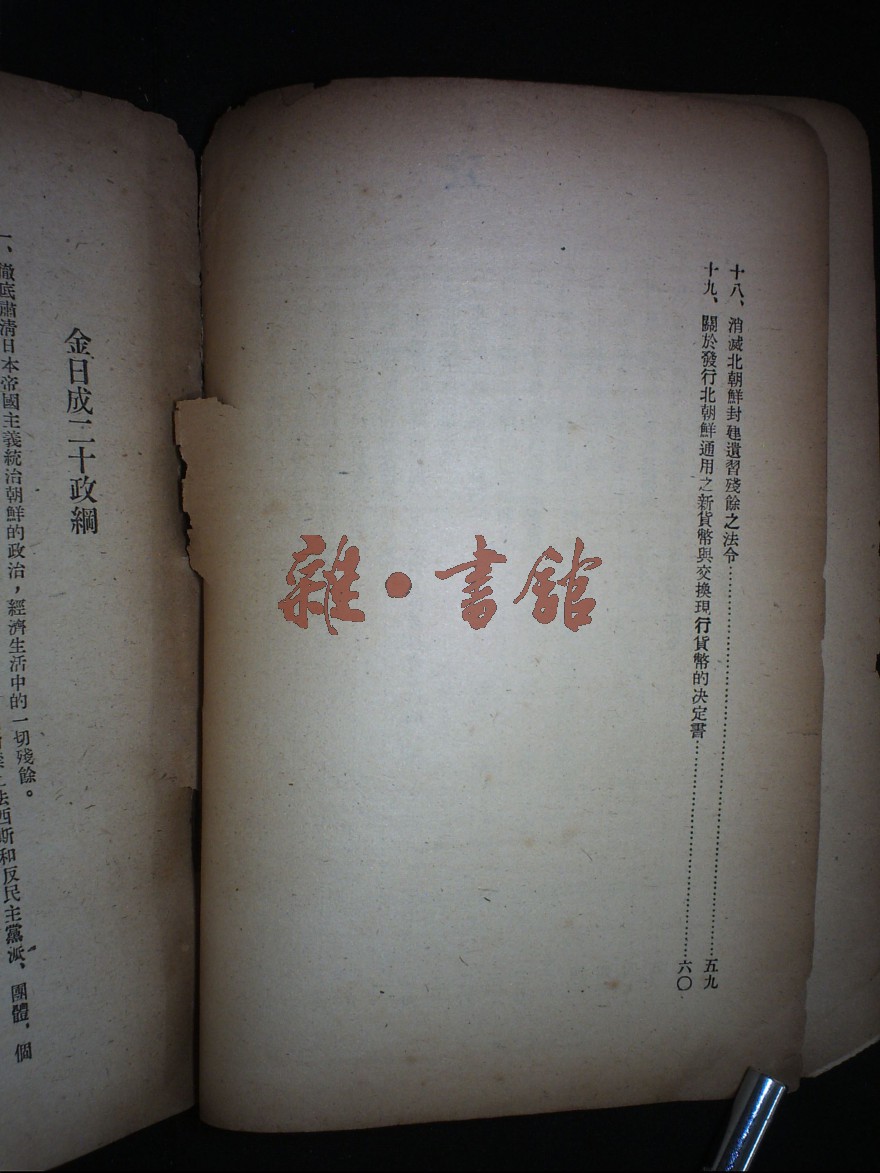 十八、消滅北朝鮮封建遺習殘餘之法令……五九
十九、關於發行北朝鮮通用之新貨幣與交換現行貨幣的决定書……六〇
雜·書館
金日成二十政綱
一、徹底肅清日本帝國主義統治朝鮮的政治，經濟生活中的一切殘餘。
法西斯和反民主黨派、團體，個